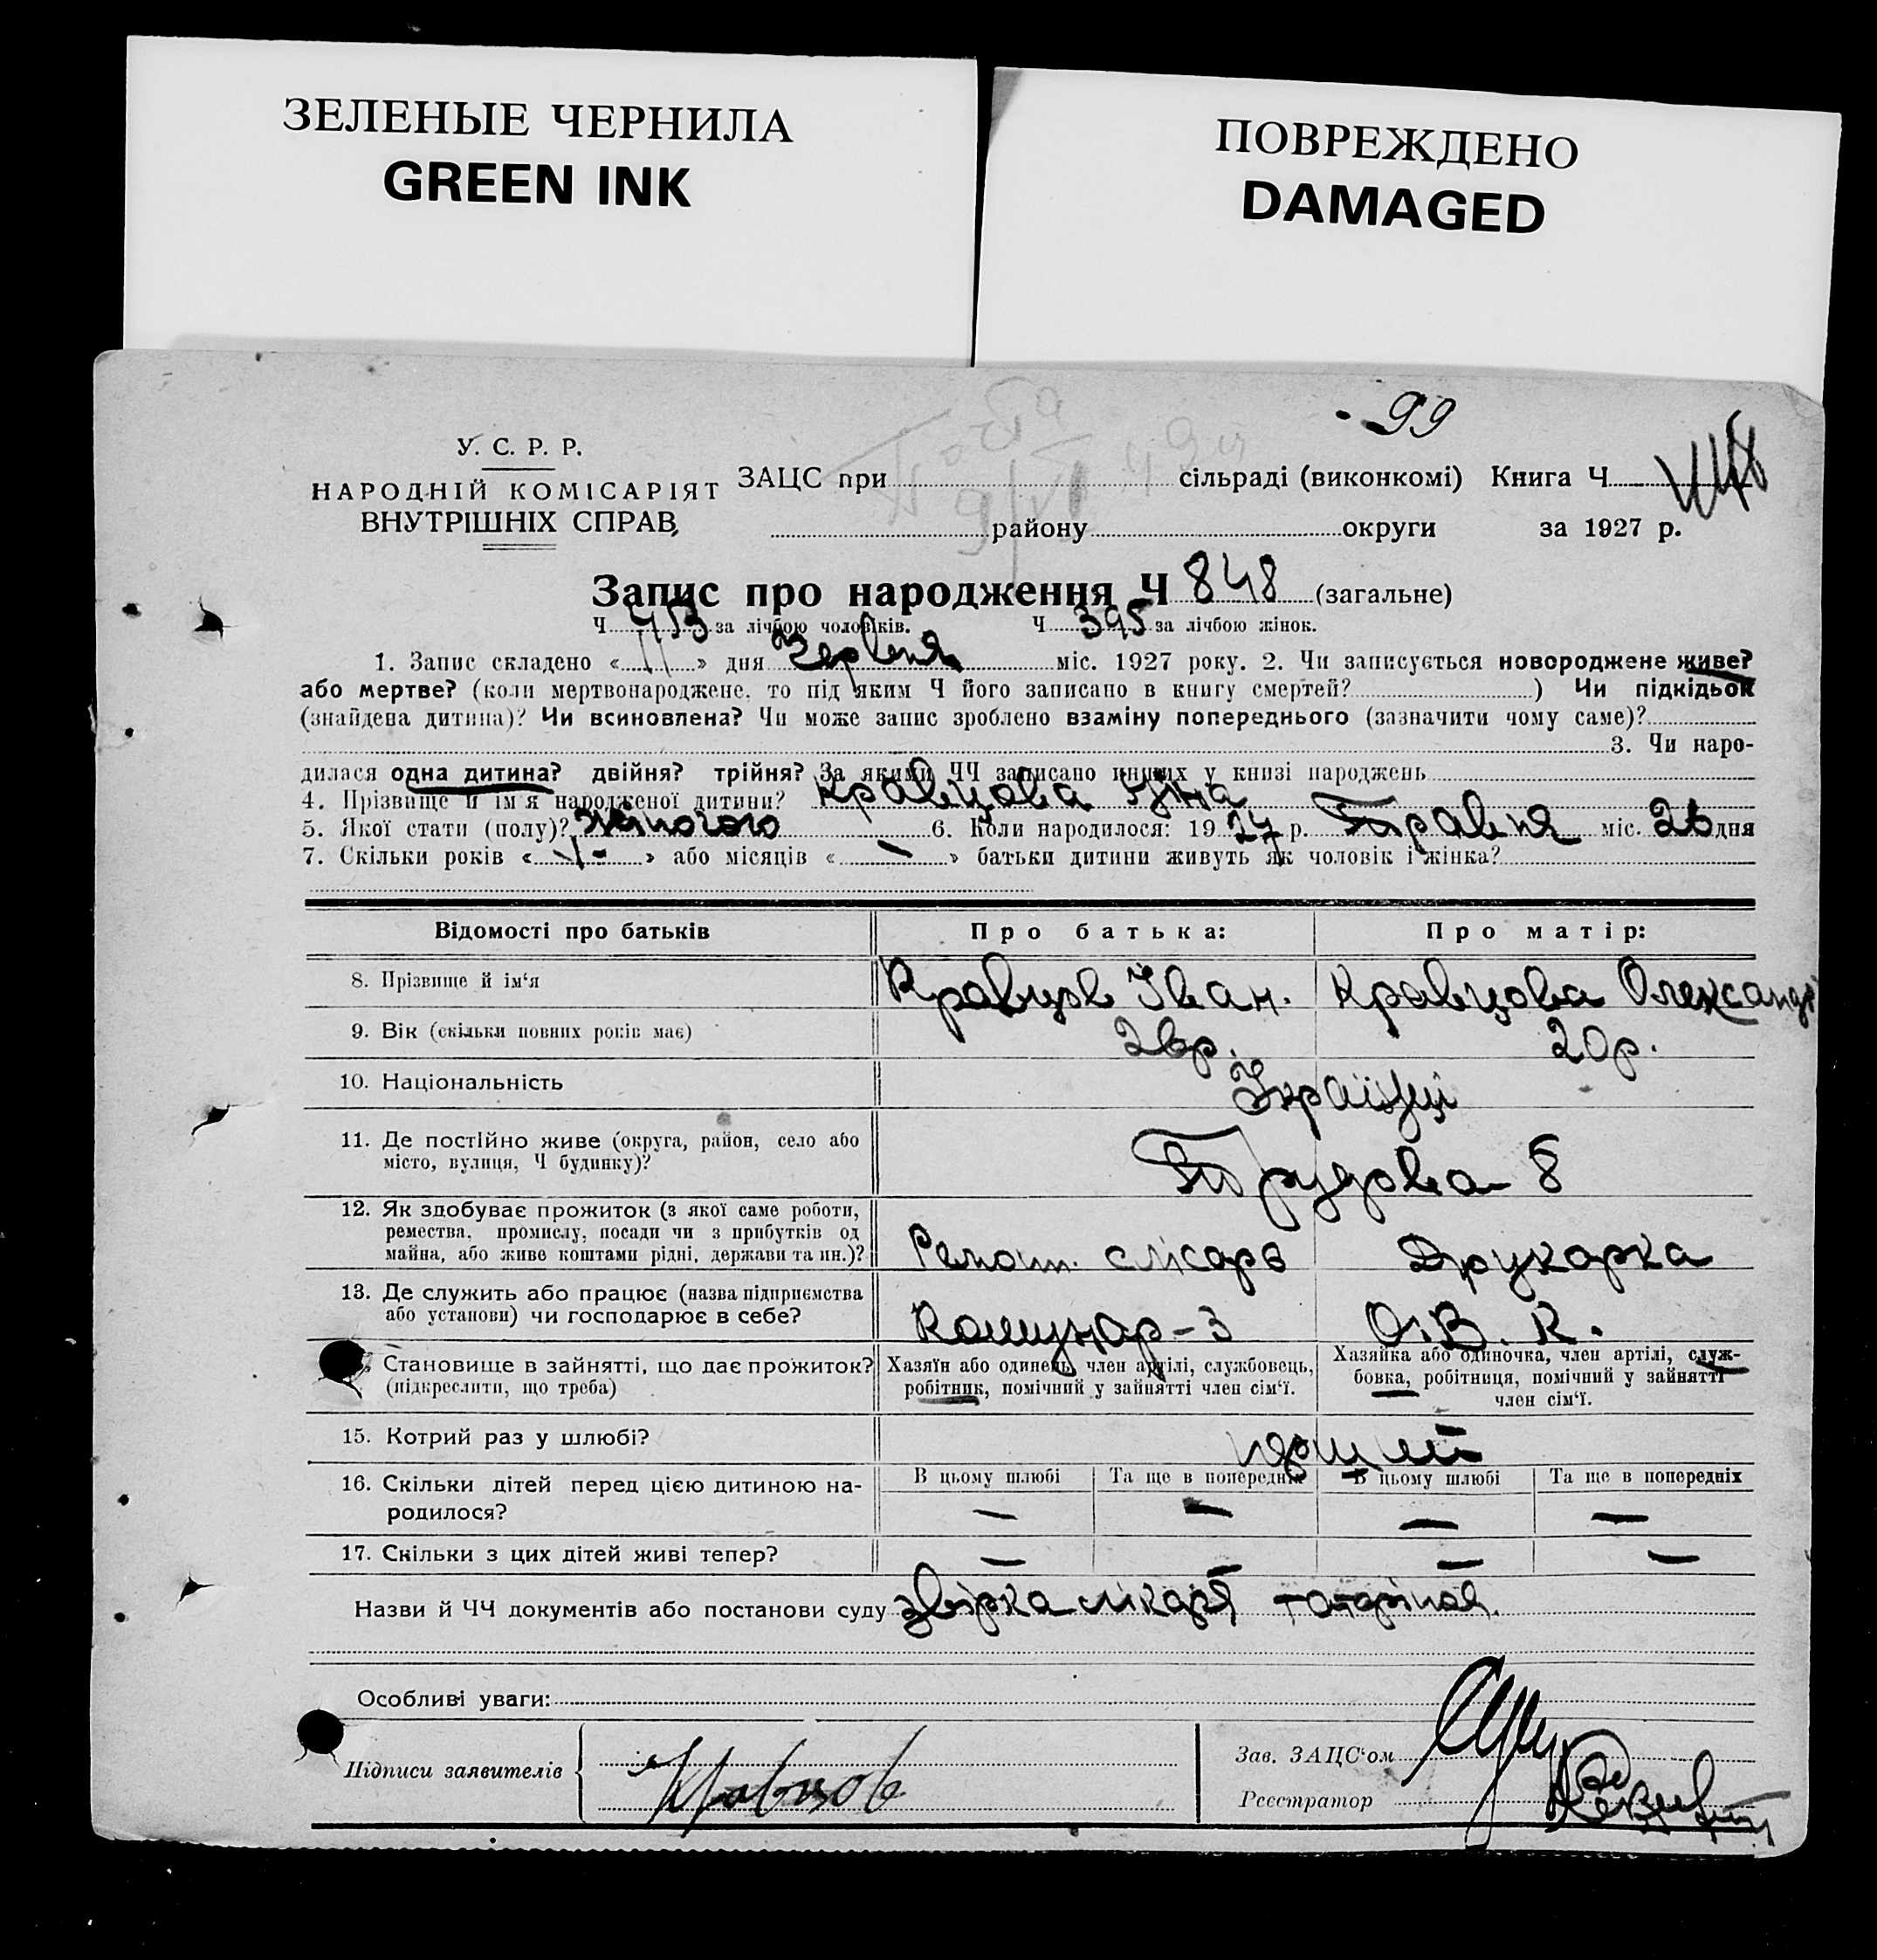 ЗЕЛЕНЫЕ ЧЕРНИЛА
GREEN INK
ПОВРЕЖДЕНО
DAMAGED
99
У. С. Р. Р.
НАРОДНІЙ КОМІСАРІЯТ
ВНУТРІШНІХ СПРАВ
ЗАЦС при сільраді (виконкомі) Книга Ч
району округи за 1927 р.
Запис про народження Ч 848 (загальне)
Ч 453 за лічбою чоловіків. Ч 395 за лічбою жінок.
1. Запис складено « 11 » дня Червня міс. 1927 року. 2. Чи записується новороджене живе?
або мертве? (коли мертвонароджене, то під яким Ч його записано в книгу смертей? ) Чи підкідьок
(знайдена дитина)? Чи всиновлена? Чи може запис зроблено взаміну попереднього (зазначити чому саме)?
3. Чи наро-
дилася одна дитина? двійня? трійня? За якими ЧЧ записано инших у книзі народжень
4. Прізвище й ім'я народженої дитини? Кравцова Ніна
5. Якої стати (полу)? Жіночого 6. Коли народилося: 1927 р. Травня міс. 26 дня
7. Скільки років « 1 - » або місяців « — » батьки дитини живуть як чоловік і жінка?
Відомості про батьків Про батька: Про матір:
8. Прізвище й ім'я Кравцов Іван. Кравцова Олександр
9. Вік (скільки повних років має) 26р. 20р.
10. Національність Українці
11. Де постійно живе (округа, район, село або
місто, вулиця, Ч будинку)? Трудова 8
12. Як здобуває прожиток (з якої саме роботи,
ремества, промислу, посади чи з прибутків од
майна, або живе коштами рідні, держави та ин.)? Ремонт. слісарь Друкарка
13. Де служить або працює (назва підприємства
або установи) чи господарює в себе? Комунар-З О.В.К.
Становище в зайнятті, що дає прожиток?
(підкреслити, що треба)
Хазяїн або одинець, член артілі, службовець,
робітник, помічний у зайнятті член сім'ї.
Хазяйка або одиночка, член артілі, служ-
бовка, робітниця, помічний у зайнятті
член сім'ї.
15. Котрий раз у шлюбі? перший
16. Скільки дітей перед цією дитиною на-
родилося?
В цьому шлюбі Та ще в попередніх В цьому шлюбі Та ще в попередніх
— — — —
17. Скільки з цих дітей живі тепер? — — — —
Назви й ЧЧ документів або постанови суду звірка лікаря
Особливі уваги:
Підписи заявителів Кравцов
Зав. ЗАЦС'ом
Реєстратор